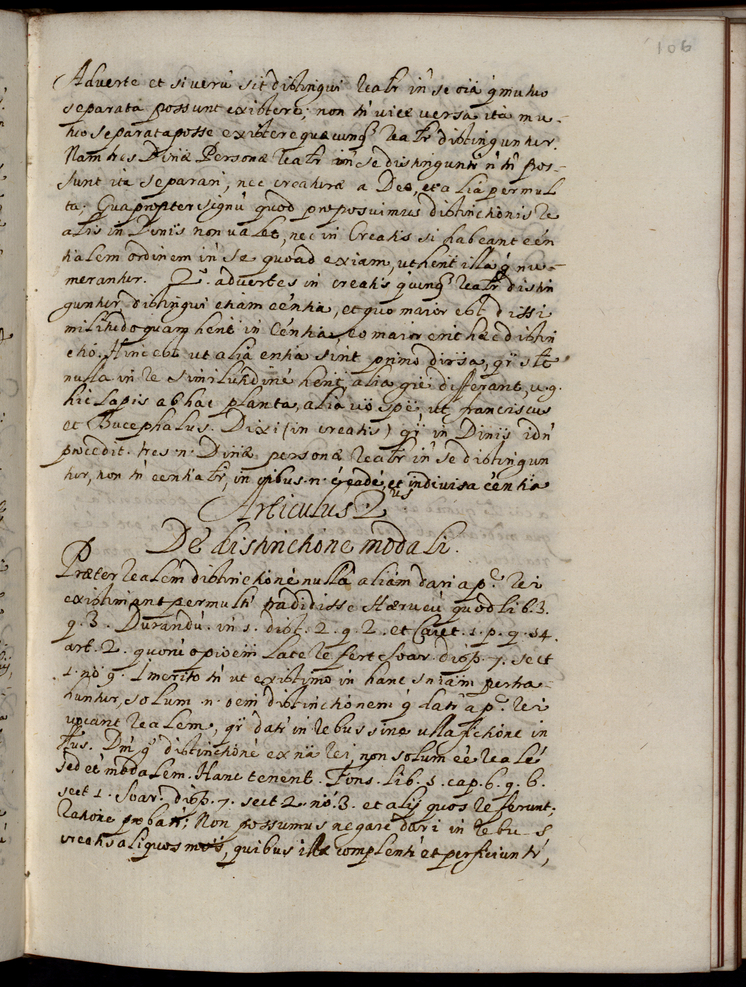 106
Adverte et si verũ sit distingui realr̃ in se oĩa q̃ mutuo
separata possunt existere; non tñ vice versa ita mu-
tuo separata posse existere quæcunq; realr̃ distinguntur.
Nam tres Divinæ Personæ realr̃ in se distinguntr̃ ñ tñ pos-
sunt ita separari, nec creaturæ a Deo, et alia permul
ta; Quapropter signũ quod proposuimus distinctionis re
alis in Divinis non valet, nec in Creatis si habeant eẽn
tialem ordinem in se quoad exiam, ut hent illa q̃ nu-
merantur. 2.º advertes in creatis q̃cunq; realr̃ distin
guntur, distingui etiam eẽntia, et quo maior est dissi
militudo quam hent in eẽntia eo maior erit hæc distin
ctio. Hinc est ut alia entia sint primo dirsa, q̃i sct
nulla in re similitudinẽ hent, alia gñe differant, v.g.
hic lapis ab hac planta, alia vo spẽ, ut franciscus
et Bucephalus. Dixi (in creatis) q̃i in Divinis idñ
procedit. tres .n. Divinæ personæ realr̃ in se distingun
tur, non tñ eentialr̃, in quibus .n. ẽ eadẽ, et indivisa eẽntia
Articulus 2us
De distinctione modali.
Præter realem distinctionẽ nullã aliam dari a p.e rei
existimant permulti tradidisse Hærveũ quod lib. 3.
q. 3. Durandũ. in 1. dist. 2. q. 2. et Caiet. 1. p. q. 54.
art. 2. quorũ opioem late refert Soar. disp. 7. sect
1. nº 9. Imerito tñ ut existimo in hanc sniam pertra-
huntur, solum .n. oem distinctionem q̃ datr̃ a p.e rei
vocant realem, q̃i datr̃ in rebus sine ulla fictione in
ttus. Dm̃ g.º distinctionẽ ex nã rei, non solum eẽ realẽ
sed et modalem. Hanc tenent. Fons. lib. 5. cap. 6. q. 6.
sect 1. Soar. disp. 7. sect 2. nº. 3. et alij quos referunt;
Ratione probatr̃; Non possumus negare dari in rebus
creatis aliquos mõs, quibus illæ complentr̃ et perficiuntr̃,